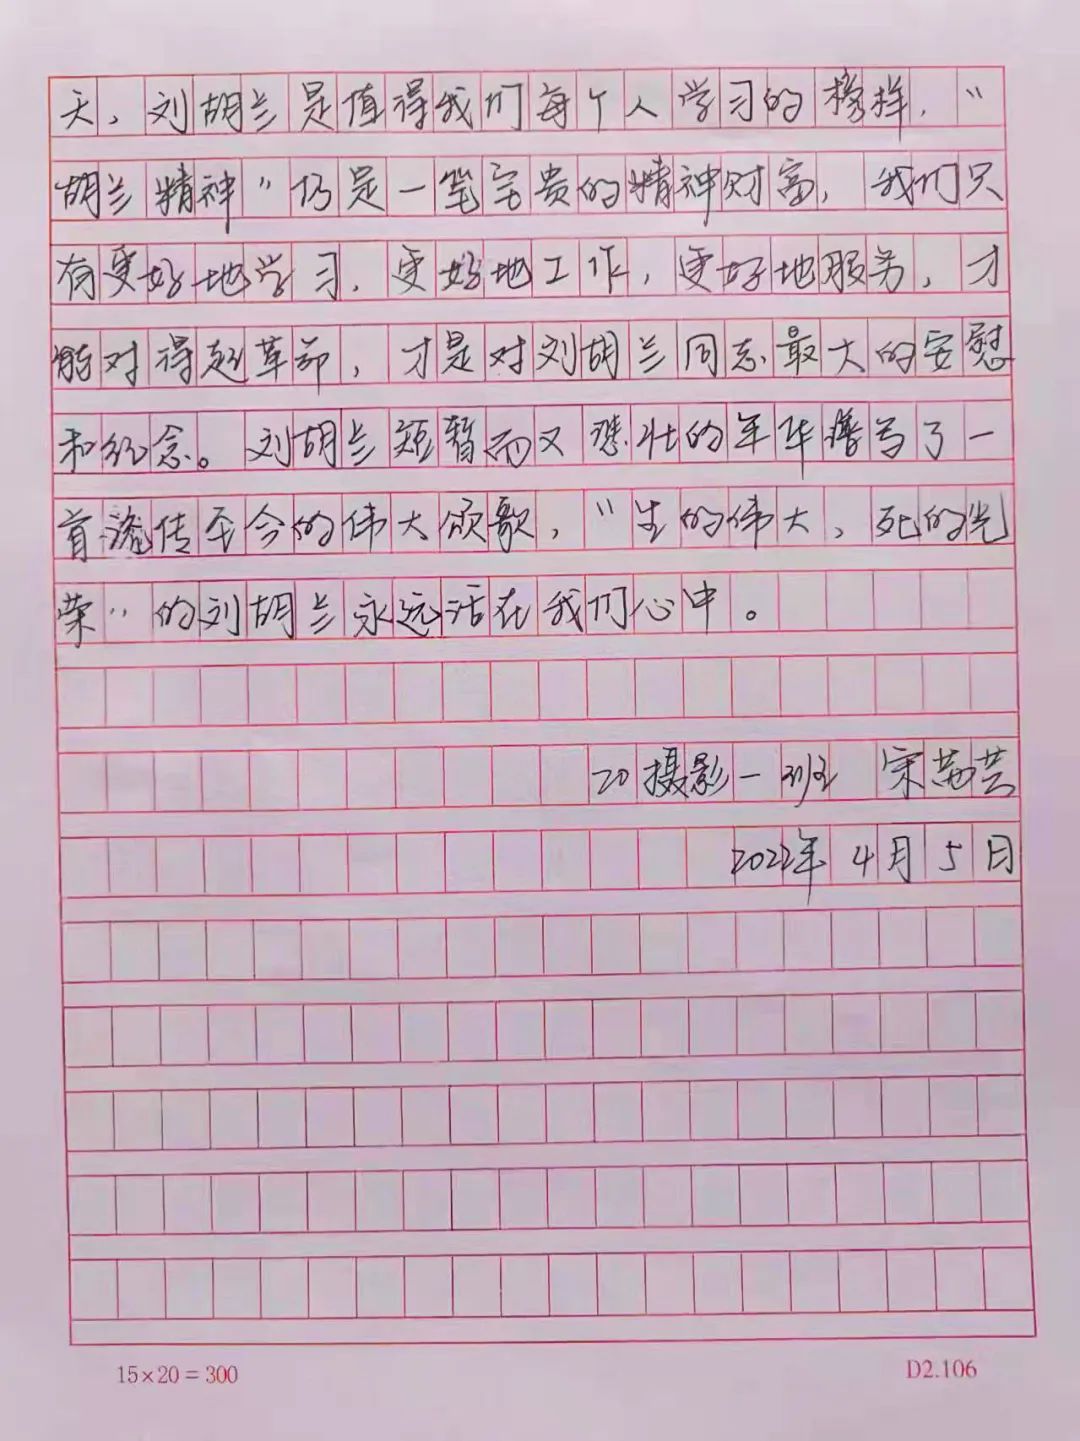 天，刘胡兰是值得我们每个人学习的榜样，“
胡兰精神”仍是一笔宝贵的精神财富，我们只
有更好地学习，更好地工作，更好地服务，才
能对得起革命，才是对刘胡兰同志最大的安慰
和纪念。刘胡兰短暂而又悲壮的年华谱写了一
首流传至今的伟大颂歌，“生的伟大，死的光
荣”的刘胡兰永远活在我们心中。
20摄影一班 宋
2022年4月5日
15×20=300
D2.106